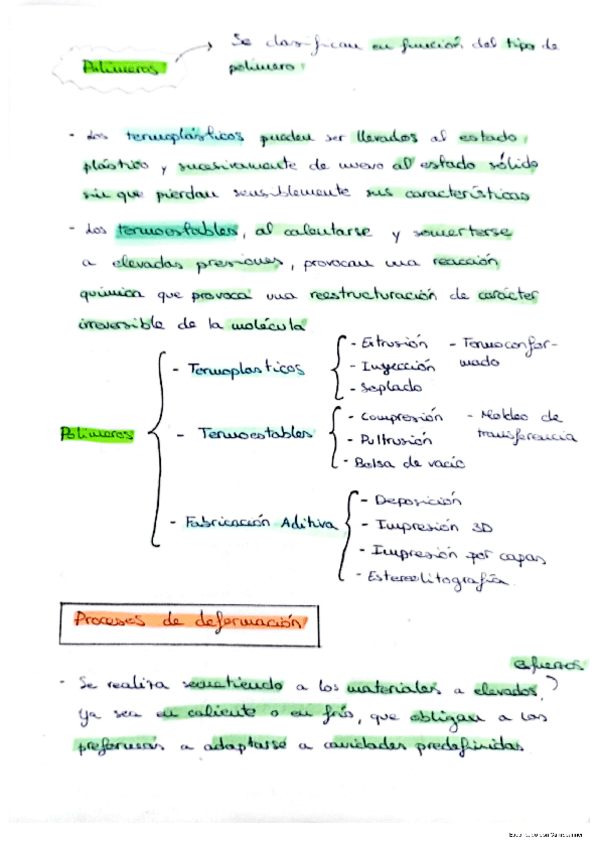 Se clasifican en función del tipo de
Polímeros
polímero:
- Los termoplásticos pueden ser llevados al estado
plástico y sucesivamente de nuevo al estado sólido
sin que pierdan sensiblemente sus características
- Los termoestables, al calentarse y someterse
a elevadas presiones, provocan una reacción
química que provoca una reestructuración de carácter
irreversible de la molécula
- Termoplasticos
- Extrusión
- Termoconfor-
mado
- Inyección
- Soplado
Polímeros
- Termoestables
- Compresión
- Moldeo de
transferencia
- Pultrusión
- Bolsa de vacío
- Fabricación Aditiva
- Deposición
- Impresión 3D
- Impresión por capas
- Estereolitografía
Procesos de deformación
esfuerzos
- Se realiza sometiendo a los materiales a elevados,
ya sea en caliente o en frío, que obligan a las
preformas a adaptarse a cavidades predefinidas